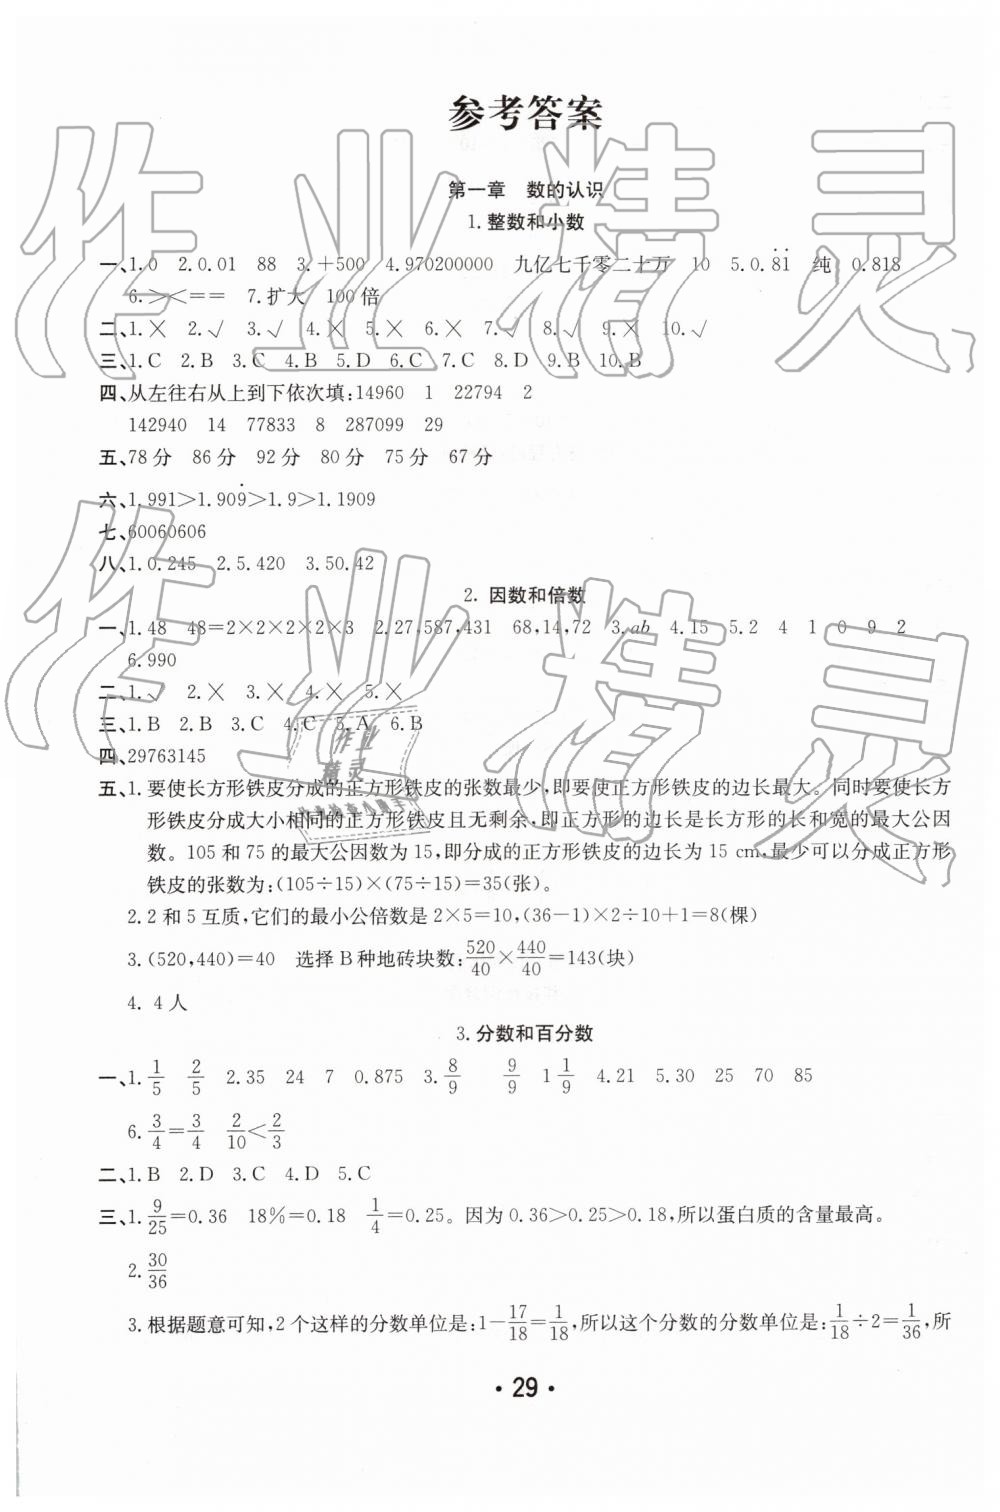 参考答案
第一章　数的认识
1.整数和小数
一、1.0　2.0.01　88　3.+500　4.970200000　九亿七千零二十万　10　5.0.8̇1̇　纯　0.818
6.＞＜＝＝　7.扩大　100倍
二、1.×　2.√　3.√　4.×　5.×　6.×　7.√　8.√　9.×　10.√
三、1.C　2.B　3.C　4.B　5.D　6.C　7.C　8.D　9.B　10.B
四、从左往右从上到下依次填:14960　1　22794　2
142940　14　77833　8　287099　29
五、78分　86分　92分　80分　75分　67分
六、1.991＞1.909̇＞1.9＞1.1909
七、60060606
八、1.0.245　2.5.420　3.50.42
2. 因数和倍数
一、1.48　48=2×2×2×2×3　2.27,587,431　68,14,72　3.ab　4.15　5.2　4　1　0　9　2
6.990
二、1.√　2.×　3.×　4.×　5.×
三、1.B　2.B　3.C　4.C　5.A　6.B
四、29763145
五、1.要使长方形铁皮分成的正方形铁皮的张数最少,即要使正方形铁皮的边长最大。同时要使长方
形铁皮分成大小相同的正方形铁皮且无剩余,即正方形的边长是长方形的长和宽的最大公因
数。105和75的最大公因数为15,即分成的正方形铁皮的边长为15 cm,最少可以分成正方形
铁皮的张数为:(105÷15)×(75÷15)=35(张)。
2.2和5互质,它们的最小公倍数是2×5=10,(36−1)×2÷10+1=8(棵)
3.(520,440)=40　选择B种地砖块数:520/40×440/40=143(块)
4. 4人
3.分数和百分数
一、1.1/5　2/5　2.35　24　7　0.875　3.8/9　9/9　1 1/9　4.21　5.30　25　70　85
6.3/4=3/4　2/10＜2/3
二、1.B　2.D　3.C　4.D　5.C
三、1.9/25=0.36　18%=0.18　1/4=0.25。因为0.36＞0.25＞0.18,所以蛋白质的含量最高。
2.30/36
3.根据题意可知,2个这样的分数单位是:1−17/18=1/18,所以这个分数的分数单位是:1/18÷2=1/36,所
·29·
作业精灵
作业精灵
作业
精灵